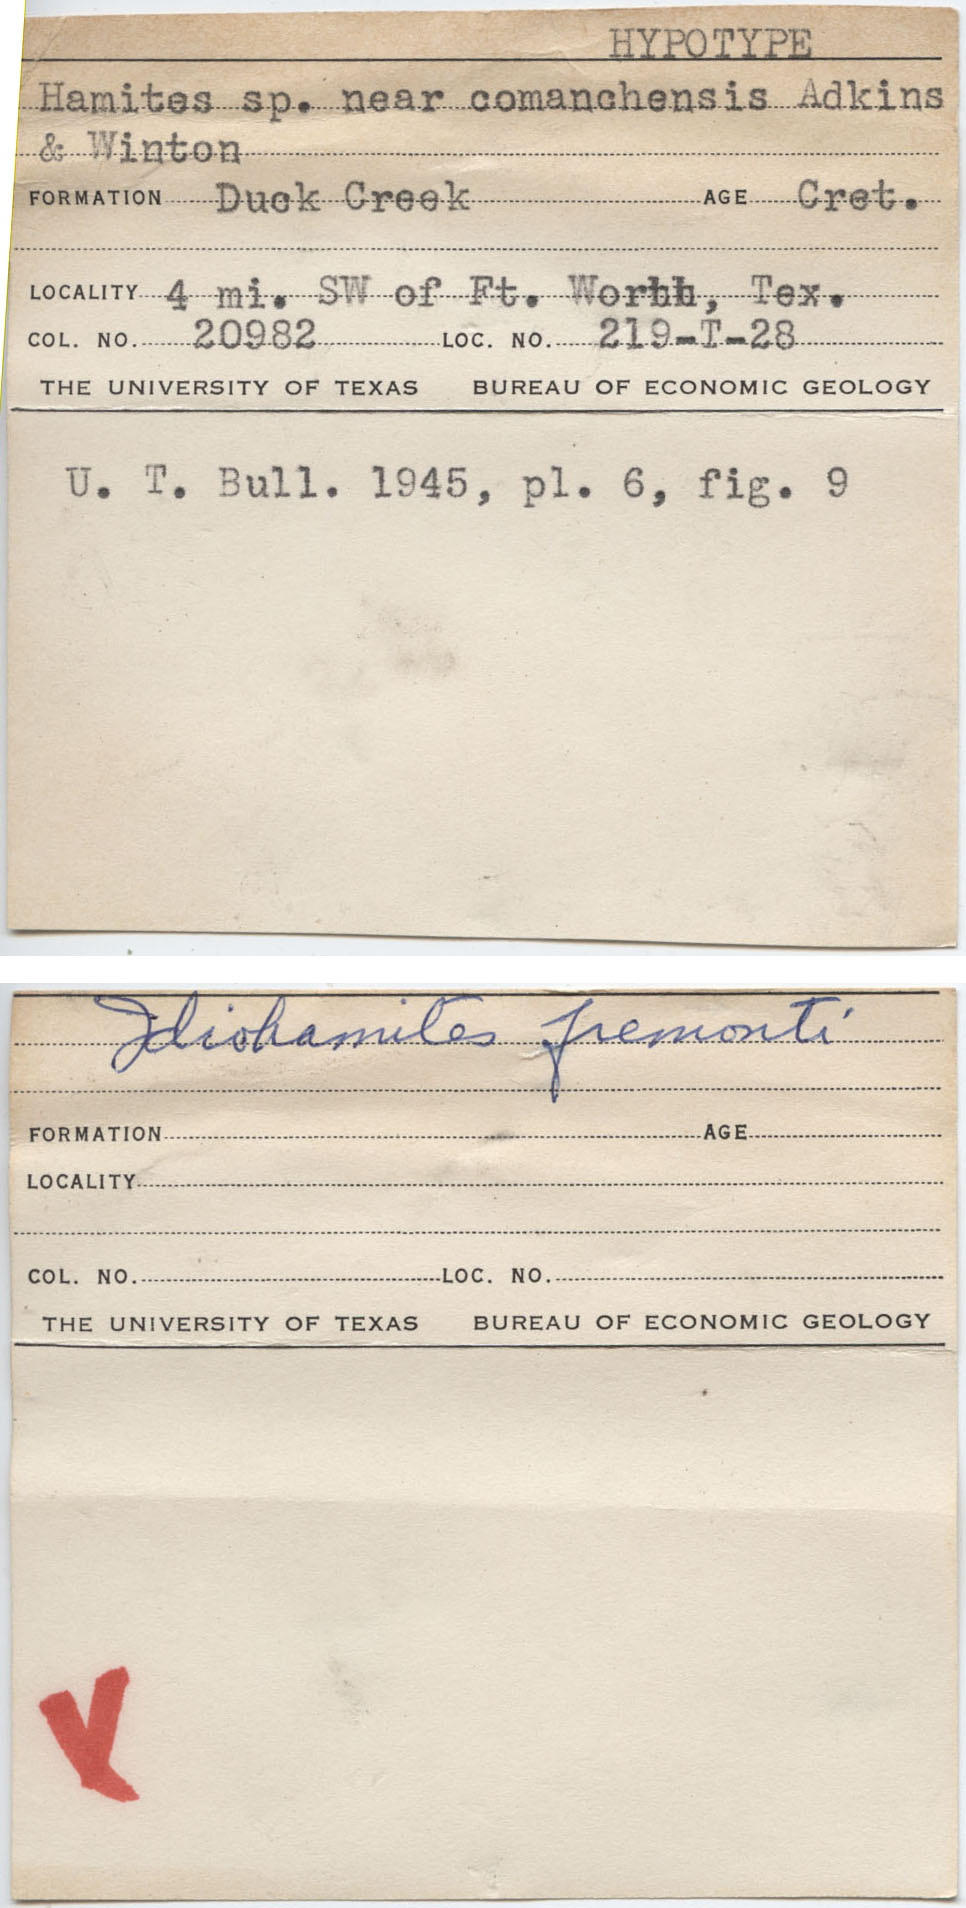 HYPOTYPE
Hamites sp. near comanchensis Adkins
& Winton
FORMATION Duck Creek AGE Cret.
LOCALITY 4 mi. SW of Ft. Worhh, Tex.
COL. NO. 20982 LOC. NO. 219-T-28
THE UNIVERSITY OF TEXAS BUREAU OF ECONOMIC GEOLOGY
U. T. Bull. 1945, pl. 6, fig. 9
Idiohamites fremonti
FORMATION AGE
LOCALITY
COL. NO. LOC. NO.
THE UNIVERSITY OF TEXAS BUREAU OF ECONOMIC GEOLOGY